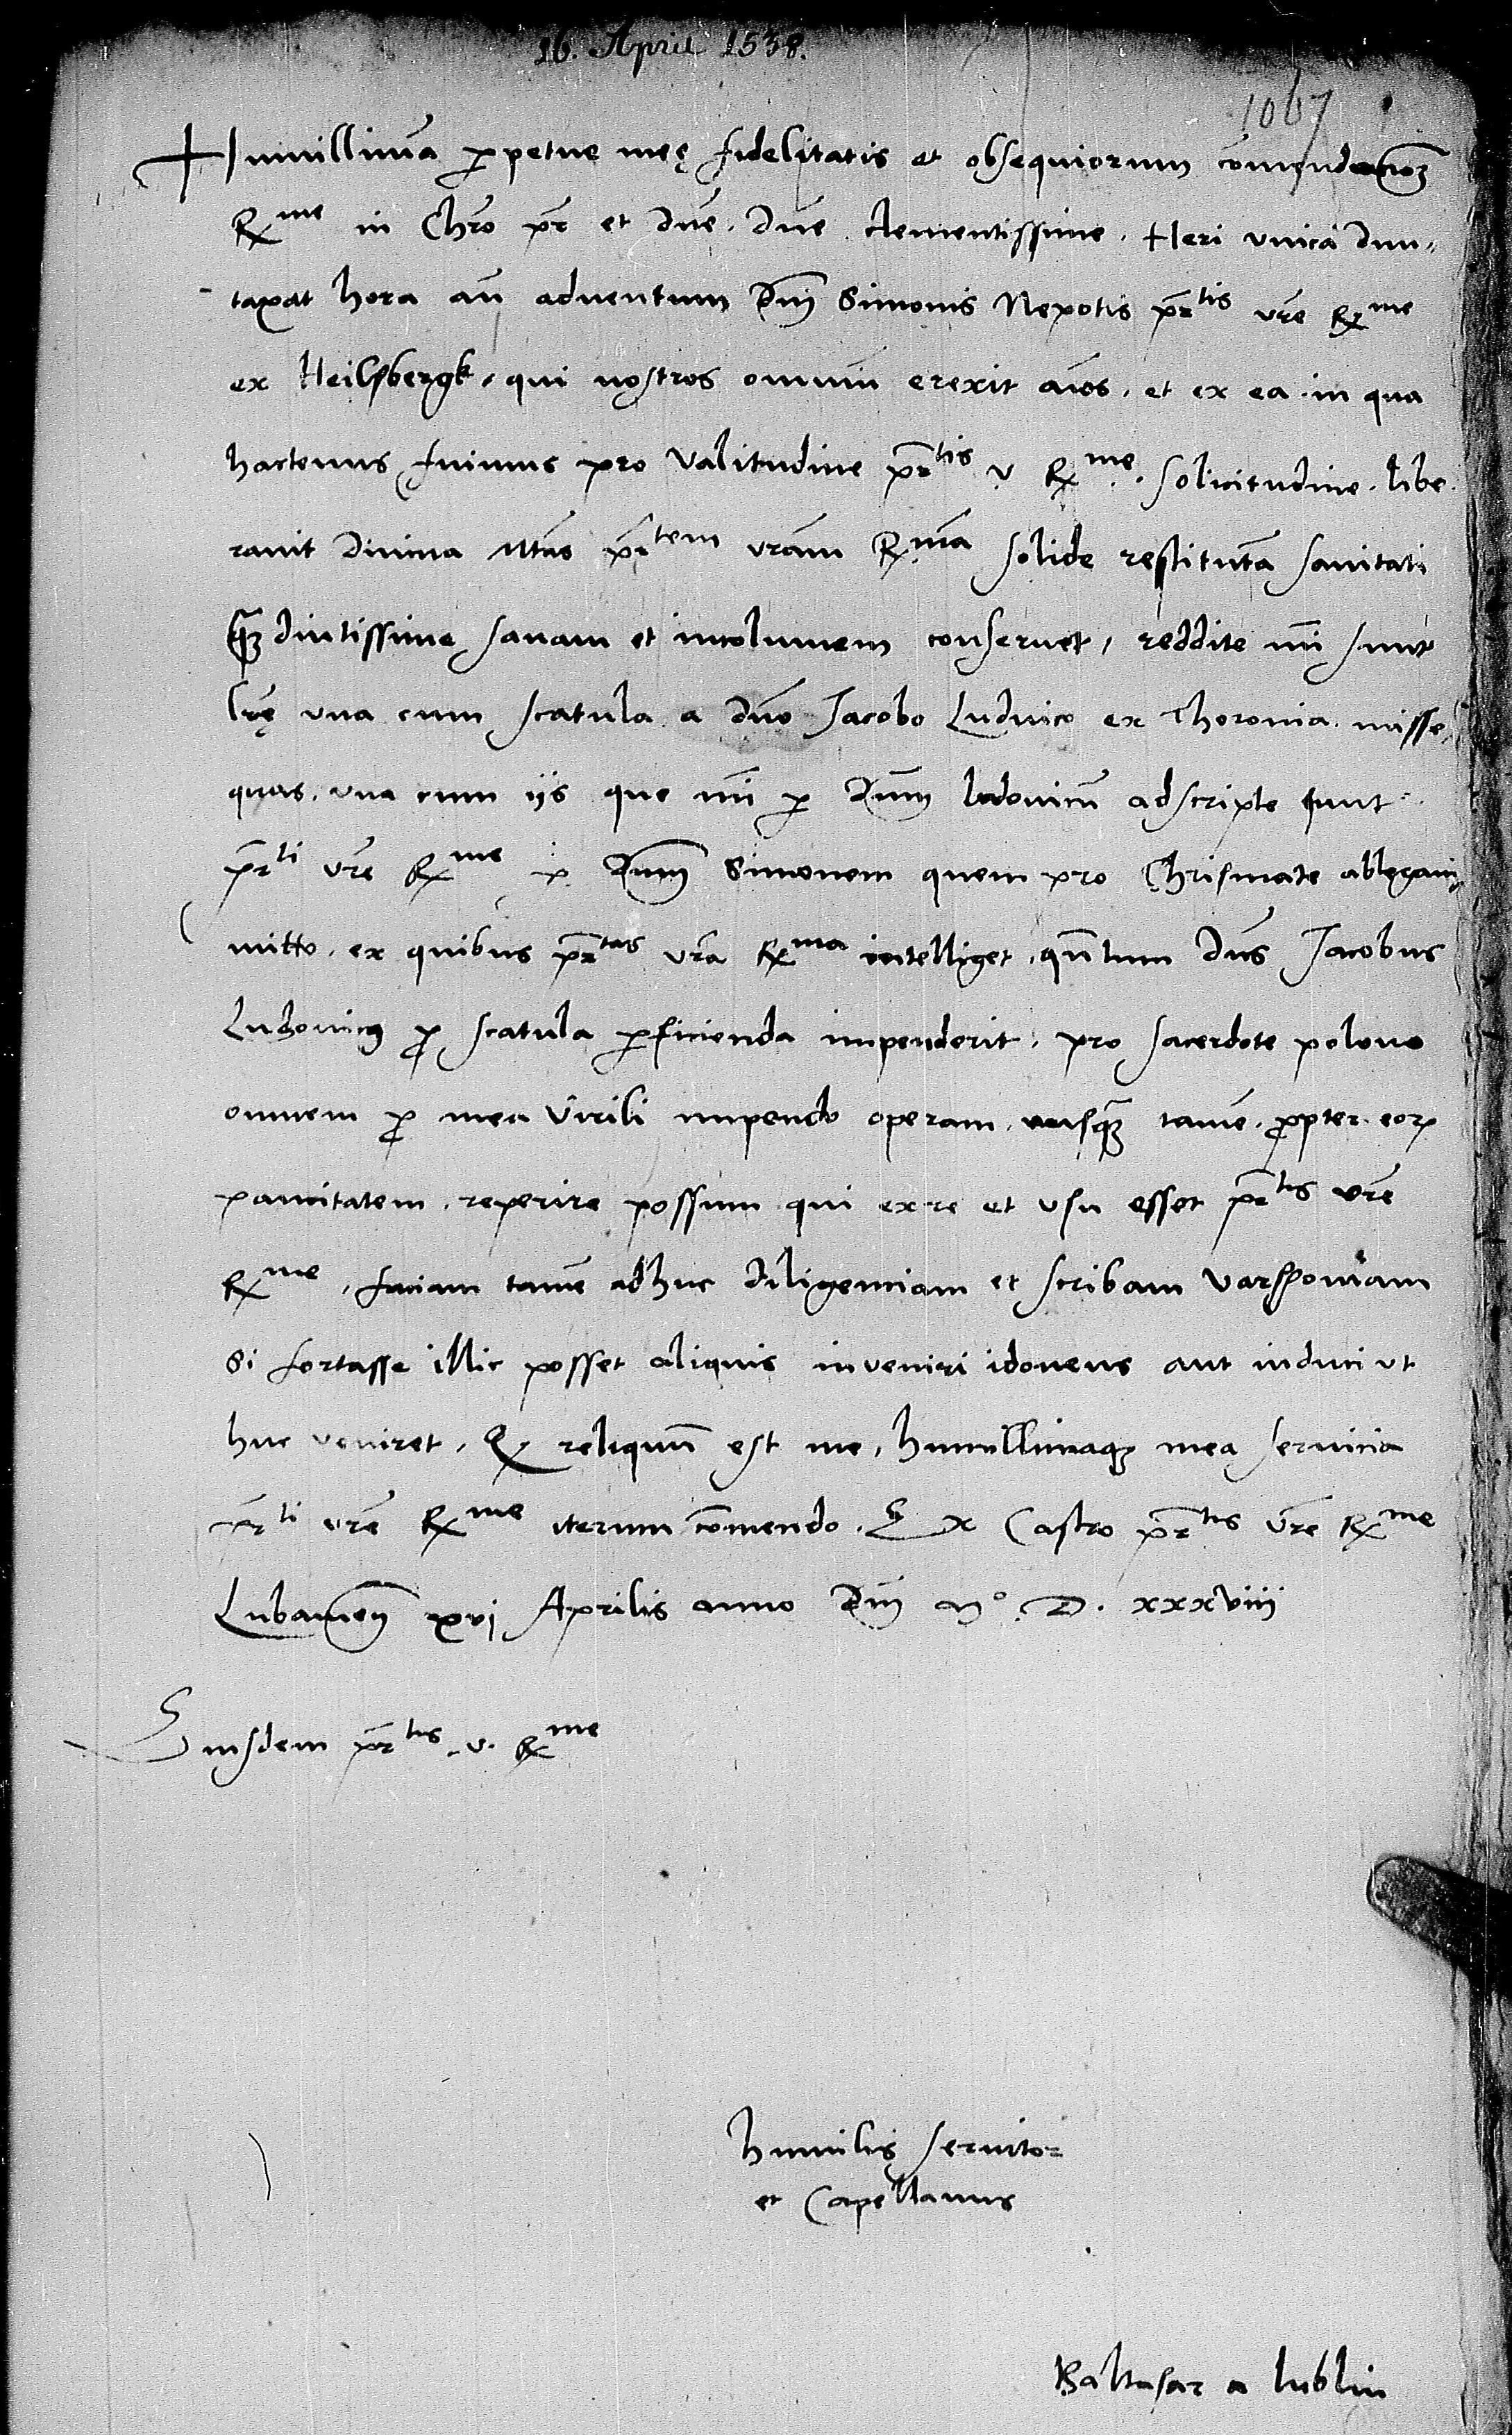 16. April 1538.
1067
Humillimā ꝑpetue meę fidelitatis et obsequiorum cōmendacionē
Rx^me in Chrō pr̄ et dn̄e. dn̄e clementissime. Heri vnica dun„
taxat hora an̄ aduentum Dn̄i Simonis Nepotis pr̄^tis vr̄e Rx^me
ex Heilsbergk, qui nostros omniū erexit aīos. et ex ea in qua
hactenus fuimus pro Valitudine pr̄^tis v Rx^me. solicitudine. libe„
rauit Diuina Mtās pr̄^tem vrām R^mā solide restitutā sanitati
qꝫ diutissime sanam et incolumem conseruet, reddite mī sunt
lrę̄ vna cum scatula a dn̄o Jacobo Luduico ex Thoronia. misse,
quas, vna cum ijs que mī ꝑ Dn̄m lodouicū adscripte sunt
pr̄^ti vr̄e Rx^me ꝑ Dn̄m Simonem quem pro Chrismate ablegaui,
mitto. ex quibus pr̄^tas vrā Rx^ma intelliget, qn̄tum Dn̄s Jacobus
Ludouicꝰ ꝓ scatula ꝑficienda impenderit. pro sacerdote polono
omnem ꝓ mea Virili impendo operam, nusqꝫ tamē. ꝓpter eorꝝ
paucitatem. reperire possum qui ex re et vsu esset pr̄^tis vr̄e
Rx^me, faciam tamē adhuc diligenciam et scribam Varschouiam
Si fortasse illic posset aliquis inueniri idoneus aut induci vt
huc veniret. Qd reliquū est me, humillimaqꝫ mea seruicia
pr̄^ti vr̄e Rx^me iterum cōmendo. Ex Castro pr̄^tis vr̄e Rx^me
Lubamen̄ xvj Aprilis anno Dn̄i M°. D. xxxviij
Eiusdem pr̄^tis. v. Rx^me
humilis seruitor
et Capellanus
Baltasar a lublin